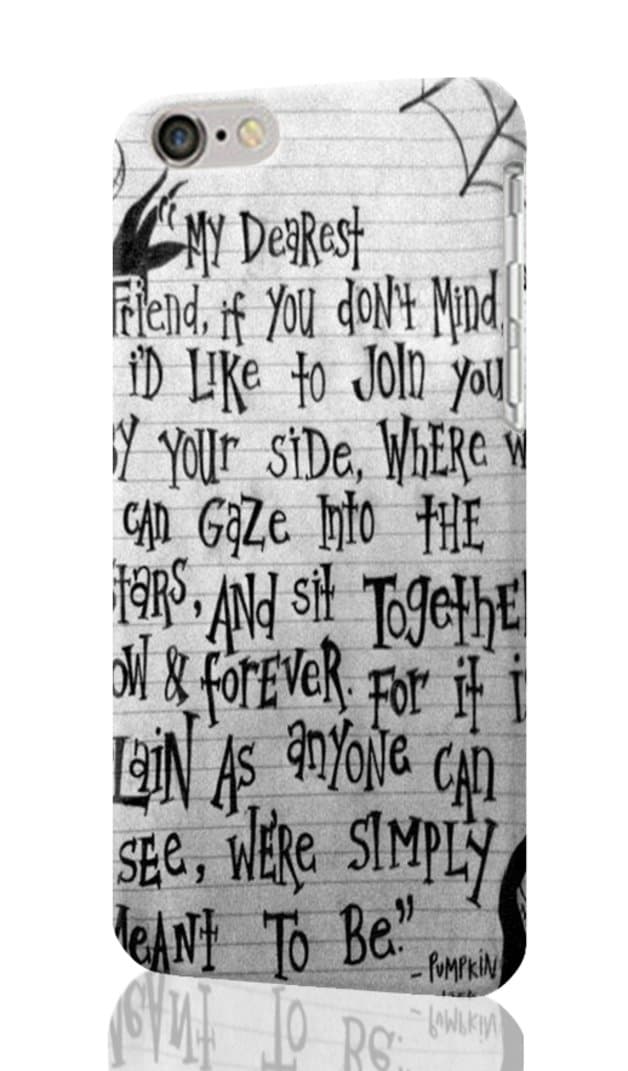 "MY DeaRest
FriEnd, if YOU doN't MiNd,
i'D LiKe to JoIn you
Y YOUr siDe, WhERe w
cAn GaZE Into tHE
tARS, ANd sit TOgetHE
oW & forEVeR. For it i
LaiN AS anYoNe CAn
SEe, WE'Re SIMPLY
MeANt To Be."
- PUMPKiN